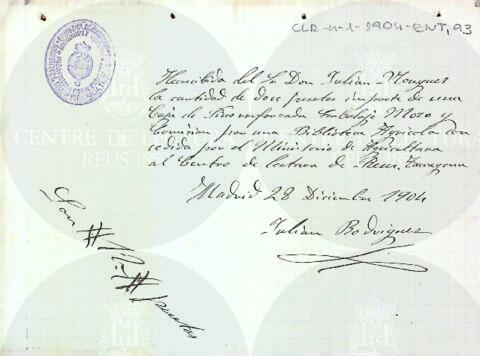 CLR-4-1-1904-ENT, 93
He recibido del Sr. Don Julian Nougues
la cantidad de doce pesetas importe de una
Caja de Pino reforzada Embalaje Mozo y
Comision por una Biblioteca Agricola con
cedida por el Ministerio de Agricultura
al Centro de lectura de Reus. Tarragona
Madrid 28 Diciembre 1904
Julian Rodriguez
Son # 12 # pesetas
CENTRE DE
REUS